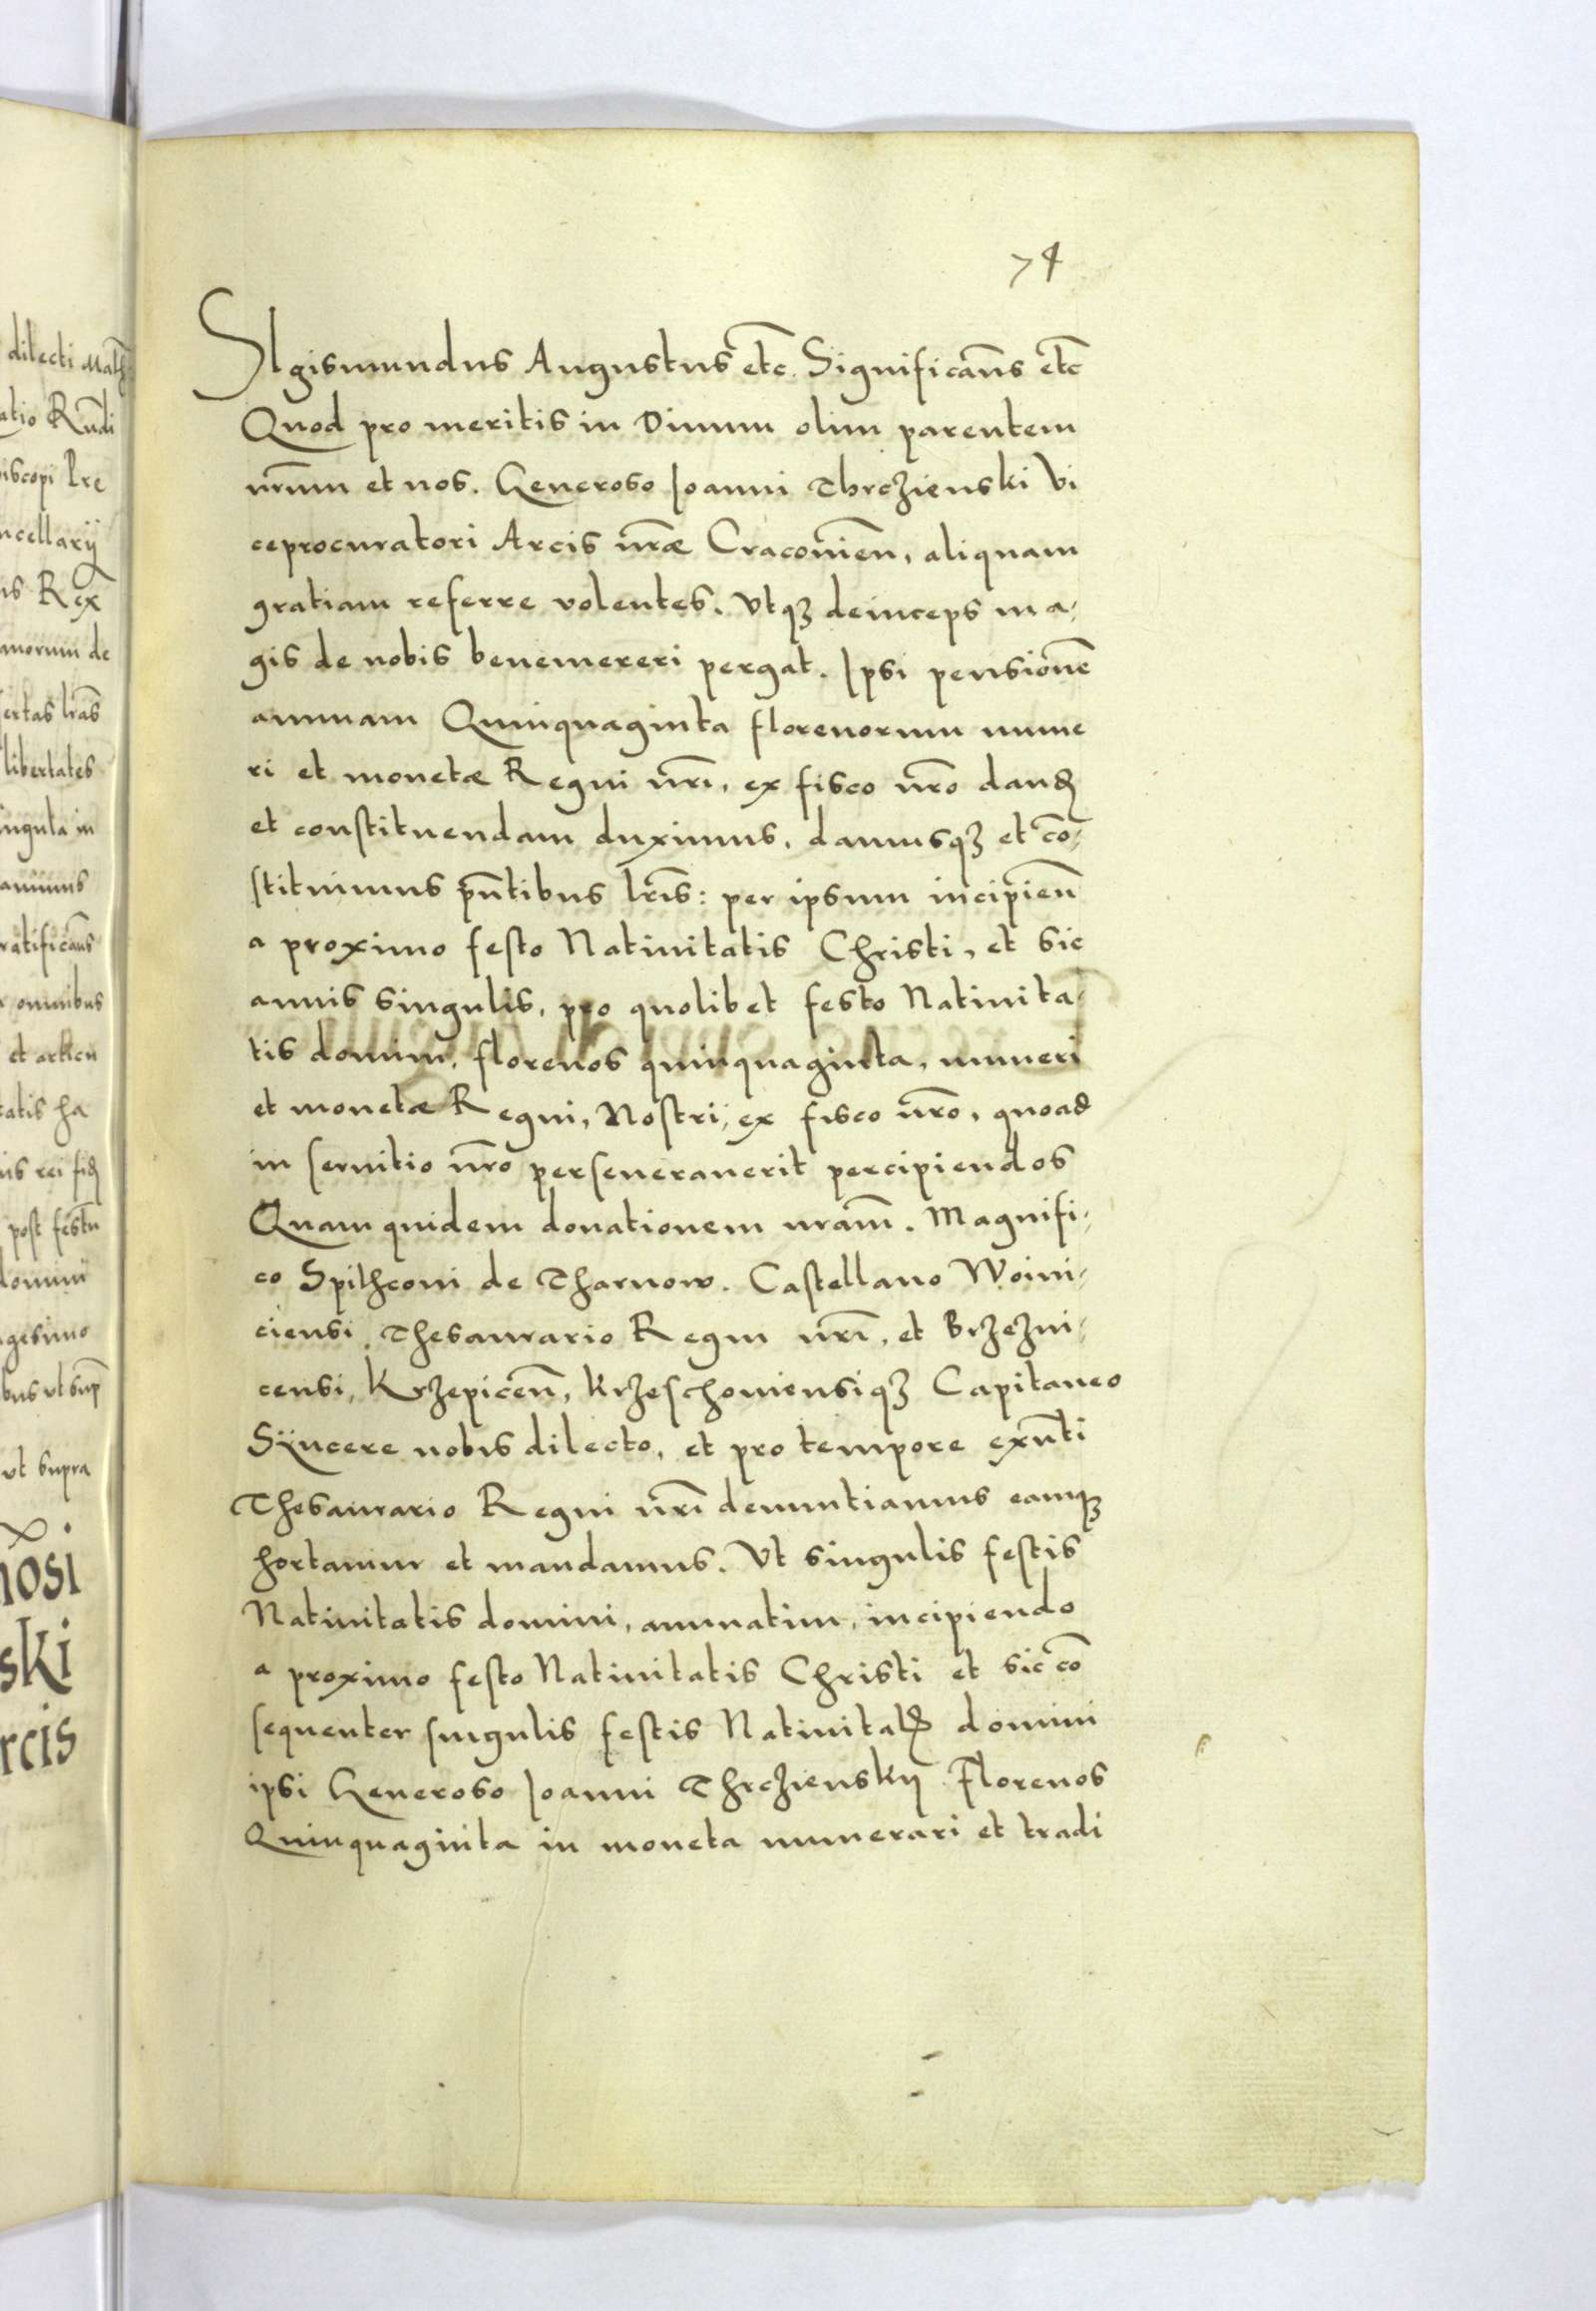 74
SIgismundus Augustus etc̃. Significam̃s etc̃
Quod pro meritis in Diuum olim parentem
nr̃um et nos. Generoso Joanni Thrczienski Vi
ceprocuratori Arcis nr̃æ Cracouien̄, aliquam
gratiam referre volentes. Vtqꝫ deinceps ma-
gis de nobis benemereri pergat. Ipsi pensionē
annuam Quinquaginta florenorum nume
ri et monetæ Regni nr̃i, ex fisco nr̃o dand̄
et constituendam duximus, damusqꝫ et cō-
stituimus pn̄tibus lr̃is: per ipsum incipien̄
a proximo festo Natiuitatis Christi, et sic
annis singulis, pro quolibet festo Natiuita-
tis domini, florenos quinquaginta, numeri
et monetæ Regni, Nostri, ex fisco nr̃o, quoad
in seruitio nr̃o perseuerauerit percipiendos
Quam quidem donationem nram̃. Magnifi-
co Spithconi de Tharnow. Castellano Woini-
ciensi, Thesaurario Regni nr̃i, et Brzezni-
censi, Krzepicen̄, Krzeschouiensiqꝫ Capitaneo
Sÿncere nobis dilecto, et pro tempore exn̄ti
Thesaurario Regni nr̃i denuntiamus eamqꝫ
hortamur et mandamus. Vt singulis festis
Natiuitatis domini, annuatim, incipiendo
a proximo festo Natiuitatis Christi et sic cō
sequenter singulis festis Natiuitatꝭ domini
ipsi Generoso Joanni Thrczienskij Florenos
Quinquaginta in moneta numerari et tradi